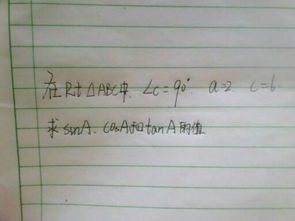 在Rt△ABC中. ∠C=90° a=2 c=6
求sinA. cosA和tanA的值